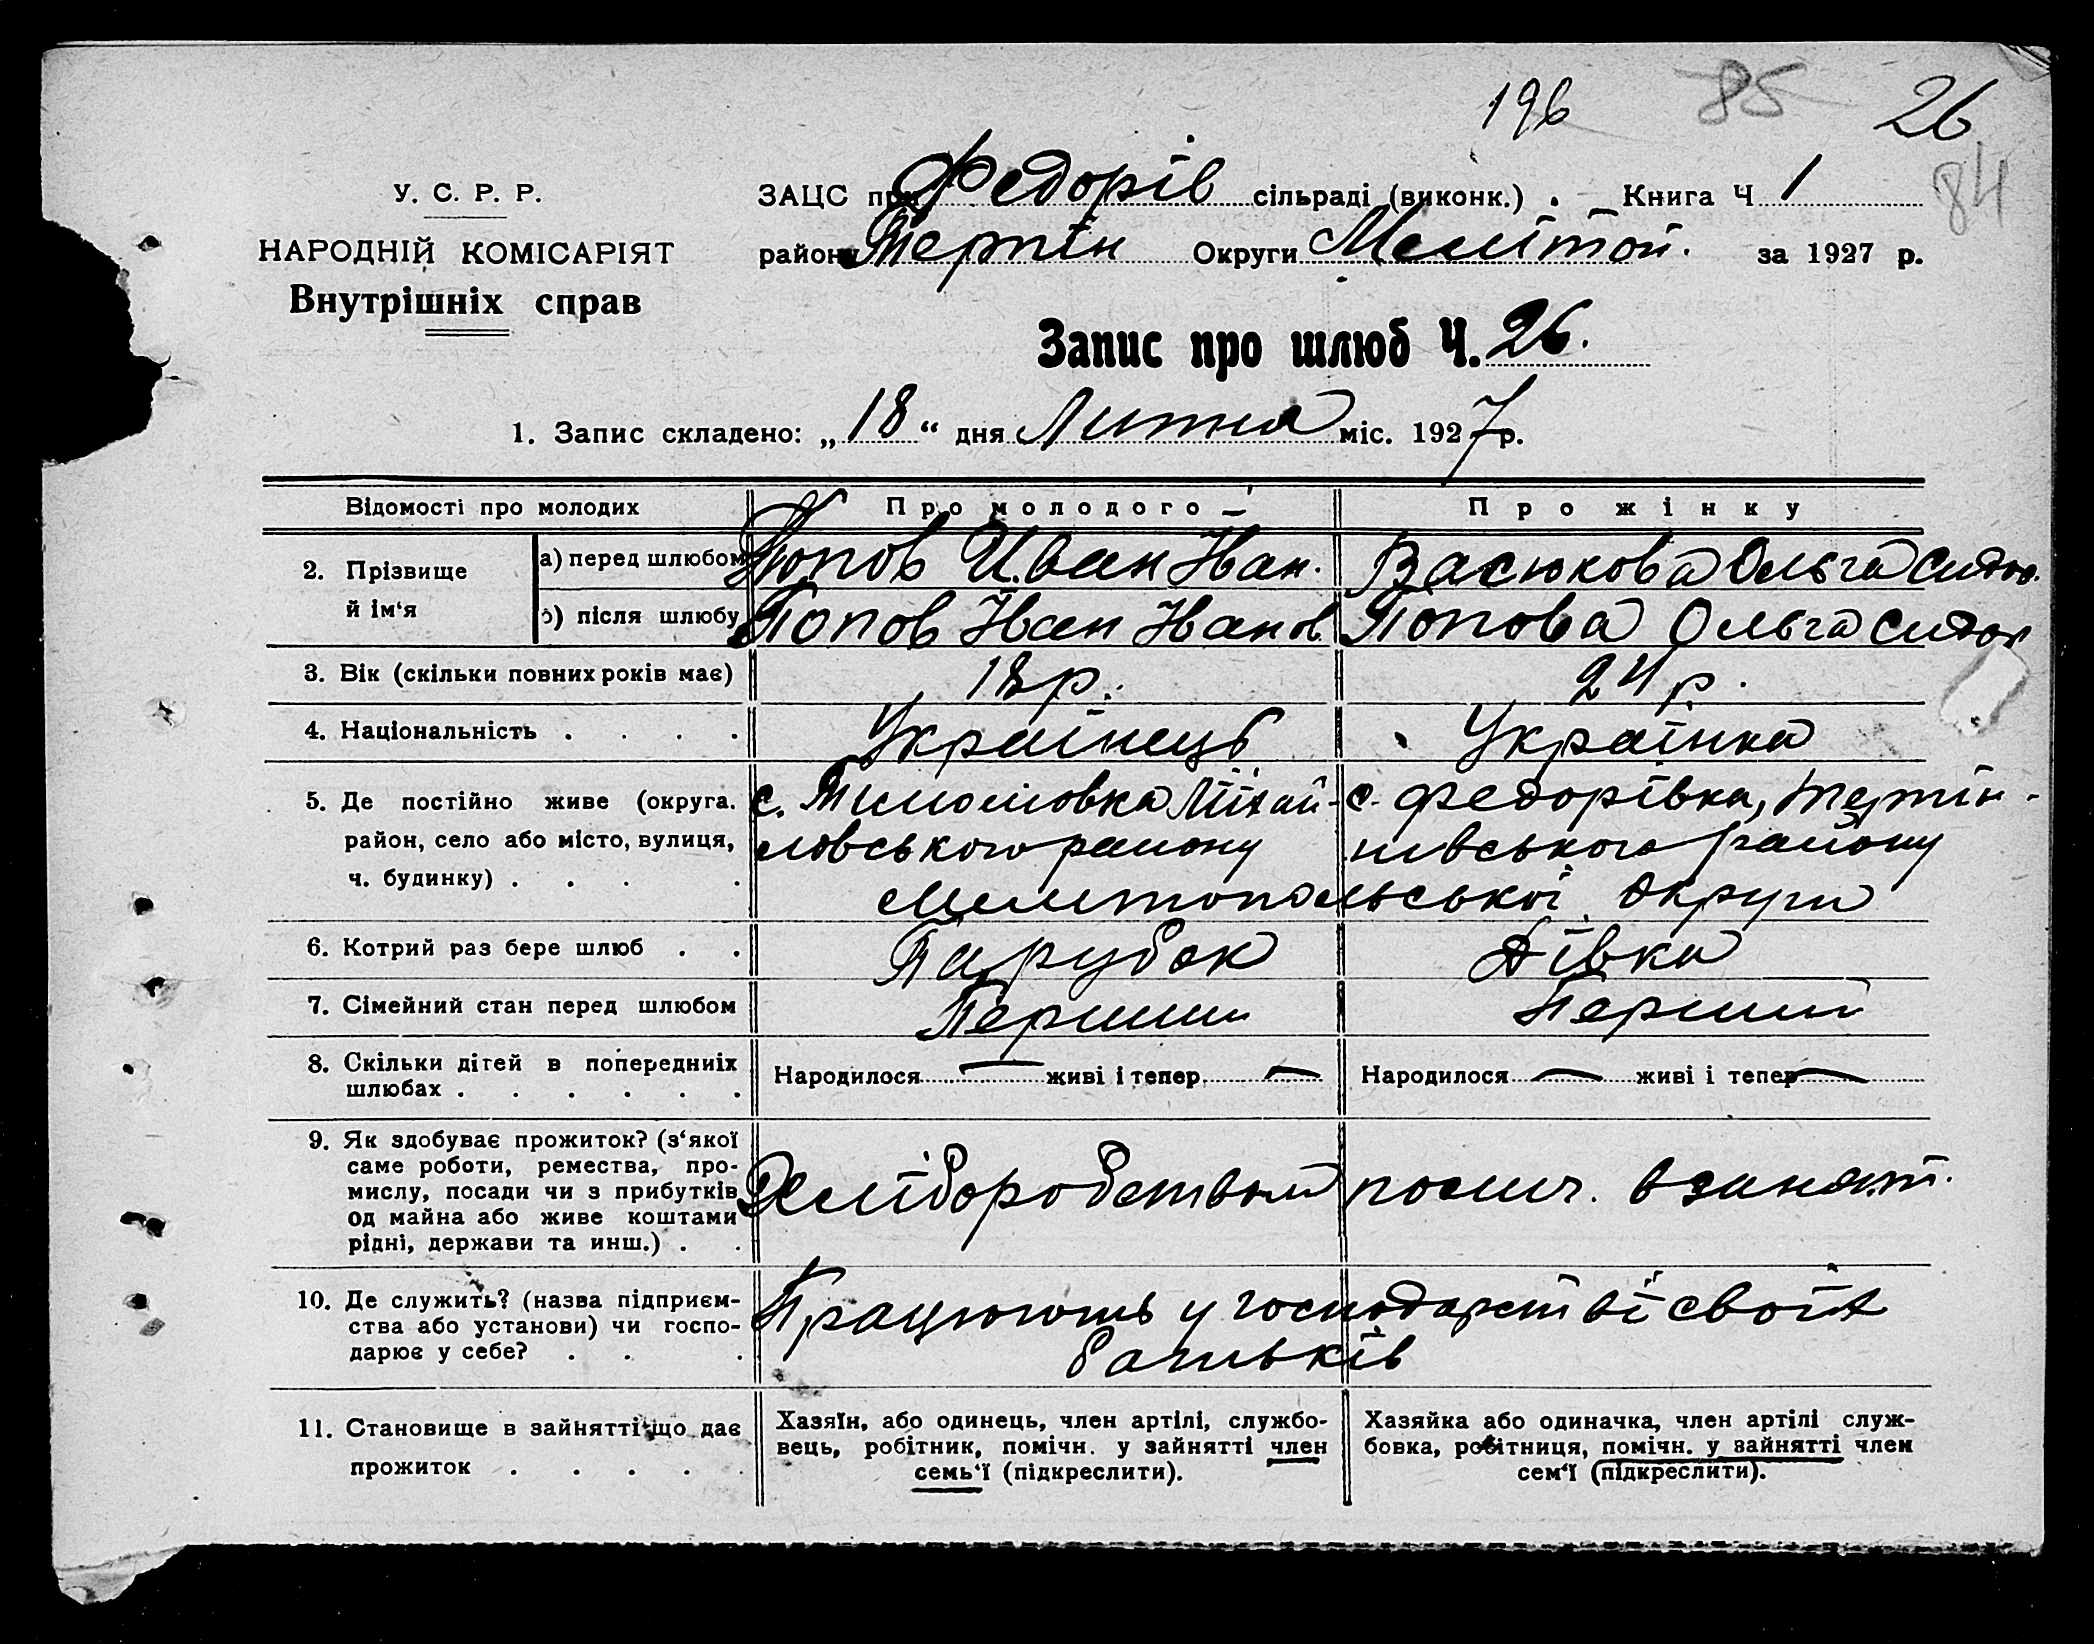 196 85 26
84
У. С. Р. Р.
НАРОДНІЙ КОМІСАРІЯТ
Внутрішніх справ
ЗАЦС при Федорів сільраді (виконк.) . Книга Ч 1
району Терпін Округи Меліто́п. за 1927 р.
Запис про шлюб Ч. 26.
1. Запис складено: „18“ дня Лютня міс. 1927 р.
Відомості про молодих Про молодого Про жінку
2. Прізвище й ім‘я
а) перед шлюбом Попов Иван Иван. Васюкова Ольга Сидор.
б) після шлюбу Попов Иван Иванов Попова Ольга Сидор
3. Вік (скільки повних років має) 18 р. 24 р.
4. Національність . . . . Українець Українка
5. Де постійно живе (округа, с. Тимошовка Міхай- с. Федорівка, Терпін-
район, село або місто, вулиця, ловського району нівського району
ч. будинку) . . . . Мелитопольської Округи
6. Котрий раз бере шлюб . . Парубок Дівка
7. Сімейний стан перед шлюбом Перший Перший
8. Скільки дітей в попередниіх шлюбах . . . . . .
Народилося — живі і тепер — Народилося — живі і тепер —
9. Як здобуває прожиток? (з‘якої
саме роботи, ремества, про-
мислу, посади чи з прибутків
од майна або живе коштами
рідні, держави та инш.) . .
Хліборобством
10. Де служить? (назва підприєм-
ства або установи) чи госпо-
дарює у себе? . . .
Працюють у господарстві своїх
батьків
11. Становище в зайнятті що дає
прожиток . . . . .
Хазяїн, або одинець, член артілі, службо-
вець, робітник, помічн. у зайнятті член
семь‘ї (підкреслити).
Хазяйка або одиначка, член артілі служ-
бовка, робітниця, помічн. у зайнятті член
сем‘ї (підкреслити).